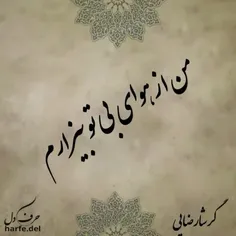 من از هوای بی تو بیزارم
گرشا رضایی
حرف دل
harfe.del